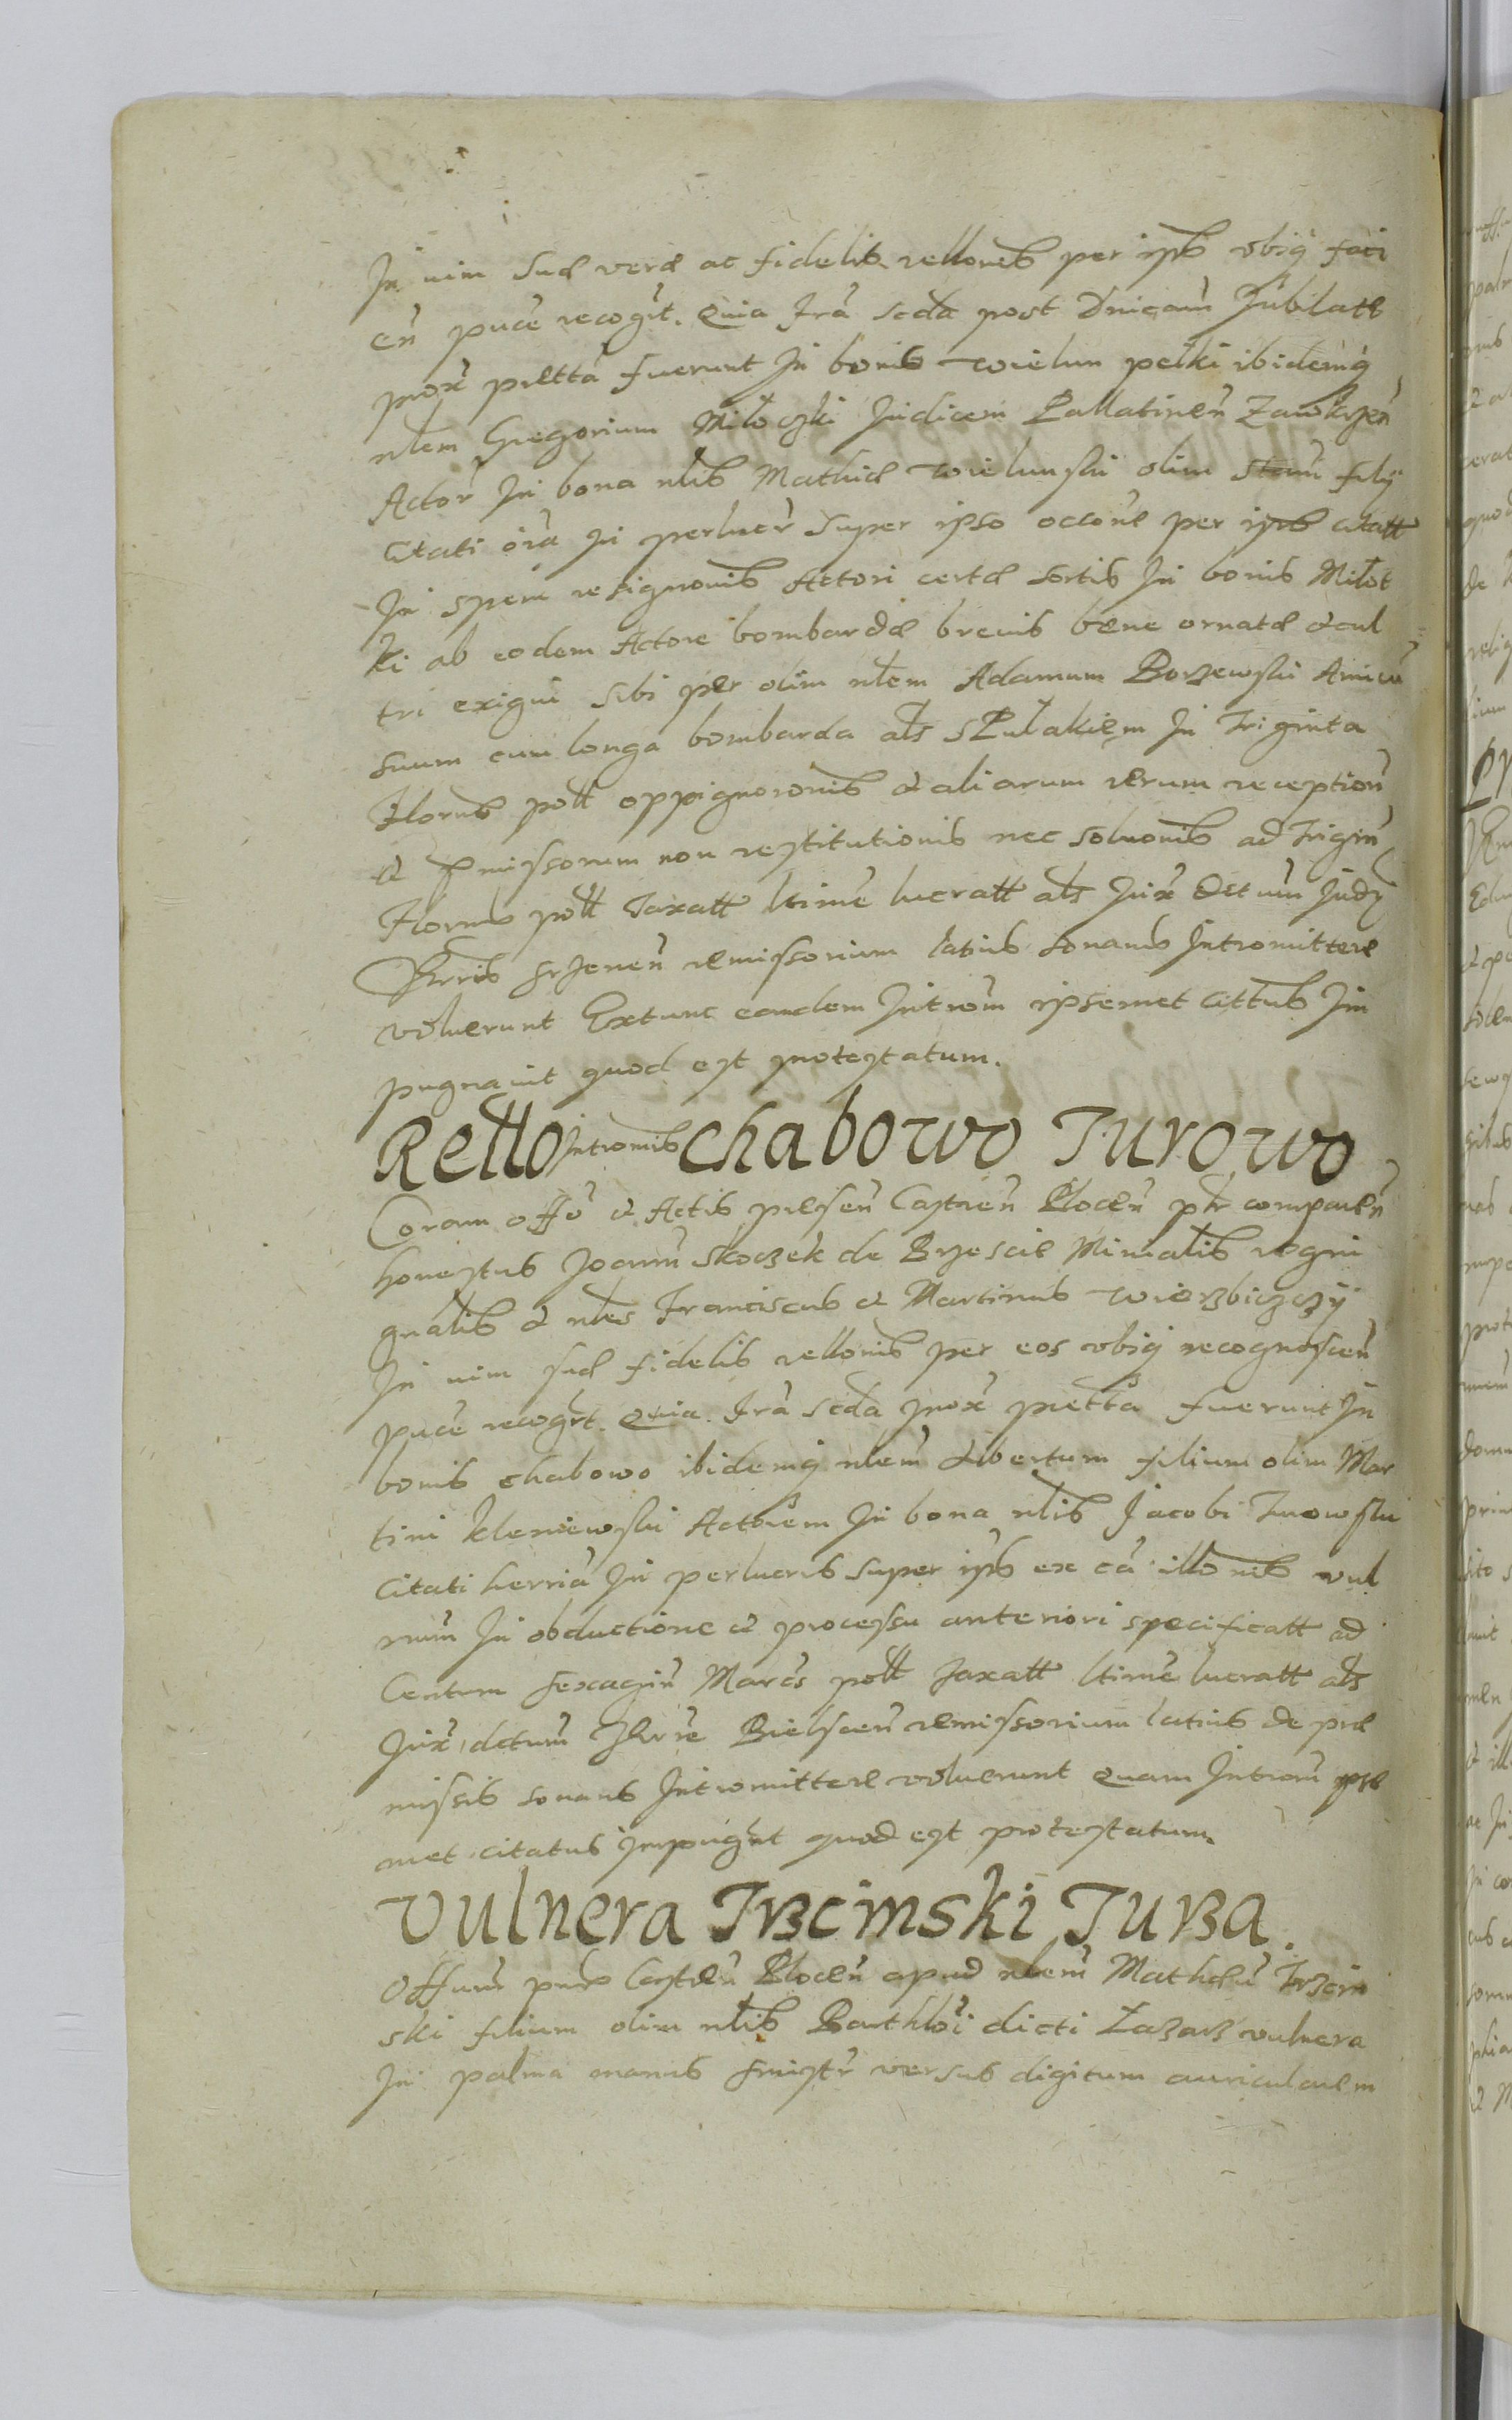 In vim suæ veræ ac fidelis rellonis per ipsos ubiq faci
en puce recogit. Quia fra scda post Dnicam Jubilatt
prox prettta fuerunt In bonis Wielun pelki ibidemq
nlem Gregorium Miloczki Judicem Pallatinen Zawkrzen
Actor In bona nlis Mathiæ Wielunski olim Stani filij
Citati ora in perlucr super ipso occone per ipsos citatt
In spem resignonis Actori certæ sortis In bonis Milot
ki ab eodem Actore bombardæ brevis bene ornatæ & cul
tri exigui sibi per olim nlem Adamum Borzewski Amicu
suum cum longa bombarda als sPulakiem In Triginta
Florenis poll oppignoronis & aliarum rerum reception
& pmissorum non restitutionis nec solvonis ad trigin
Florenis poll Taxatt ltime lucratt als Jux Dctum Judy
Trris Srzenen remissorium latius sonans Intromittere
voluerunt Extunc eandem Introm ipsemet Cittus Im
pugnavit quod est protestatum.
Rello Intromis Chabowo Turowo
Coram offo & Actis presen Castren Plocen ptr comparen
honestus Joann Skoczek de Brzescie Ministalis regni
gnalis & nles Franciscus & Martinus Wierzbiczczy
In vim suæ fidelis rellonis per eos ubiq recognoscen
puce recogrt. Quia fra scda prox pretta fuerunt In
bonis Chabowo ibidemq nlem Albertum filium olim Mar
tini Kleniewski Actorem In bona nlis Jacobi Turowski
Citati herria In perlucris super ipso ex ca illonis vul
num In obductione & processu anteriori specificatt ad
Centum sexagin Marcs poll taxatt ltime lucratt als
Jux dctum Trre Bielscen remissorium latius de præ
missis sonans Intromittere voluerunt Quam Introm ipse
met citatus impugnt quod est protestatum.
Vulnera Trzcinski Turza.
Offum pns Castren Plocen apud nlem Matheu Trzcin
ski filium olim nlis Barthloi dicti Lazarz vulnera
In palma manus sinistr versus digitum auricularem